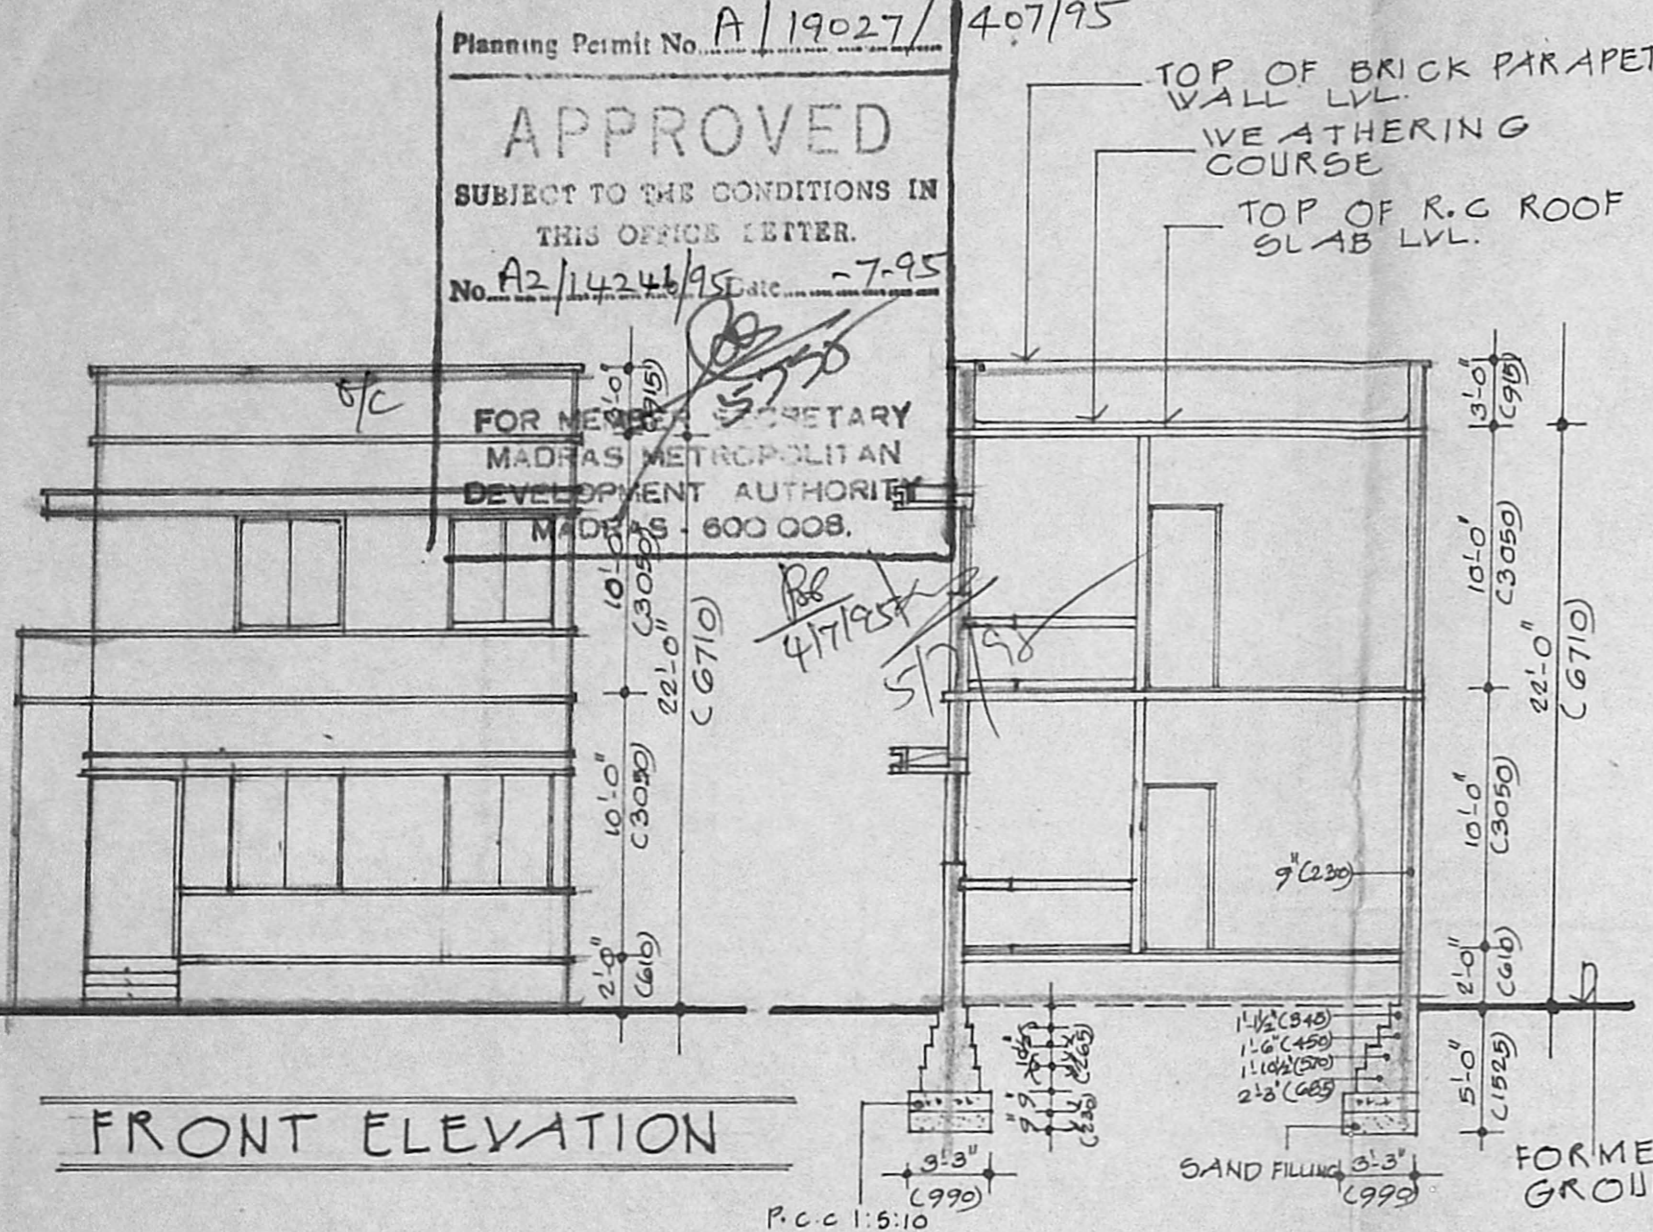 Planning Permit No. A/19027/407/95
APPROVED
SUBJECT TO THE CONDITIONS IN
THIS OFFICE LETTER.
No. A2/14246/95 Date -7-95
FOR MEMBER SECRETARY
MADRAS METROPOLITAN
DEVELOPMENT AUTHORITY
MADRAS - 600 008.
4/7/95
TOP OF BRICK PARAPET
WALL LVL.
WEATHERING
COURSE
TOP OF R.C ROOF
SLAB LVL.
O/C
3'-0"
(915)
10'-0"
(3050)
22'-0"
(6710)
10'-0"
(3050)
2'-0"
(610)
3'-0"
(915)
10'-0"
(3050)
22'-0"
(6710)
10'-0"
(3050)
9"(230)
2'-0"
(610)
5'-0"
(1525)
1'-1½"(345)
1'-6"(450)
1'-10½"(570)
2'-3"(685)
9"
9"
(265)
(230)
3'-3"
(990)
SAND FILLING
3'-3"
(990)
P.C.C 1:5:10
FORME
GROU
FRONT ELEVATION